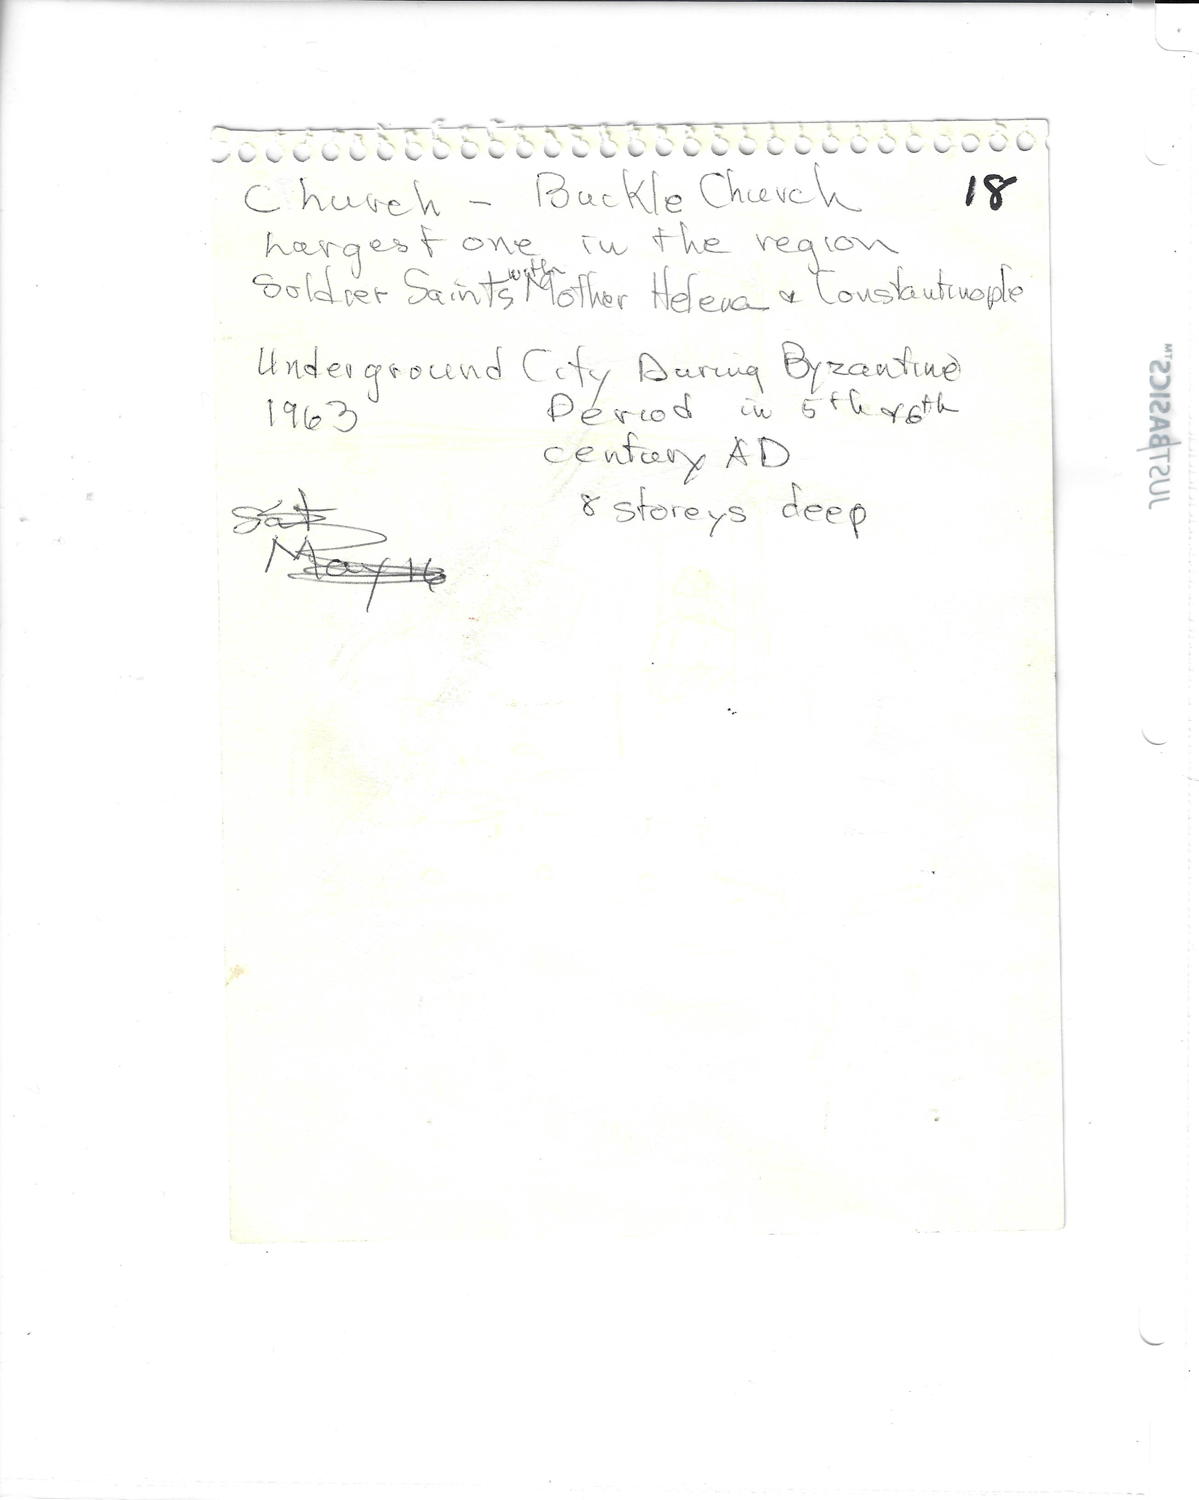 Church - Buckle Church 18
Largest one in the region
with
Soldier Saints Mother Helena & Constantinople
Underground City During Byzantine
1963 Period in 5th & 6th
century AD
8 storeys deep
Sat
May 16
JUSTBASICS™